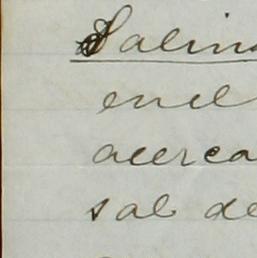 Salin
en el
acerca
sal de